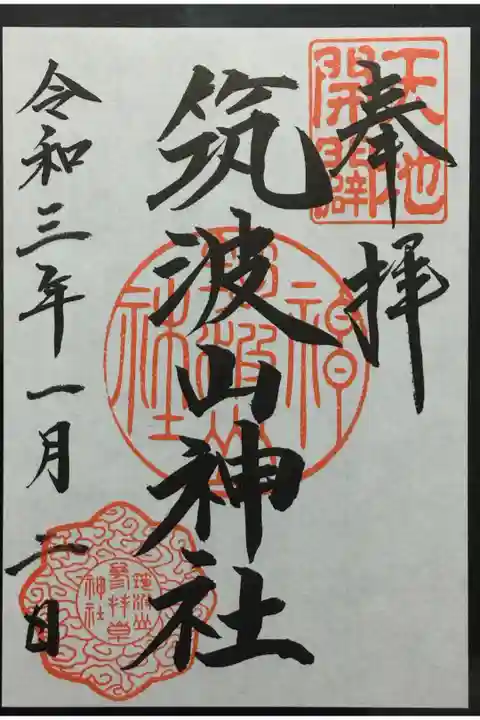 奉拝
天地
開闢
筑波山神社
筑波山
神社
令和三年一月二日
筑波山
参拝章
神社